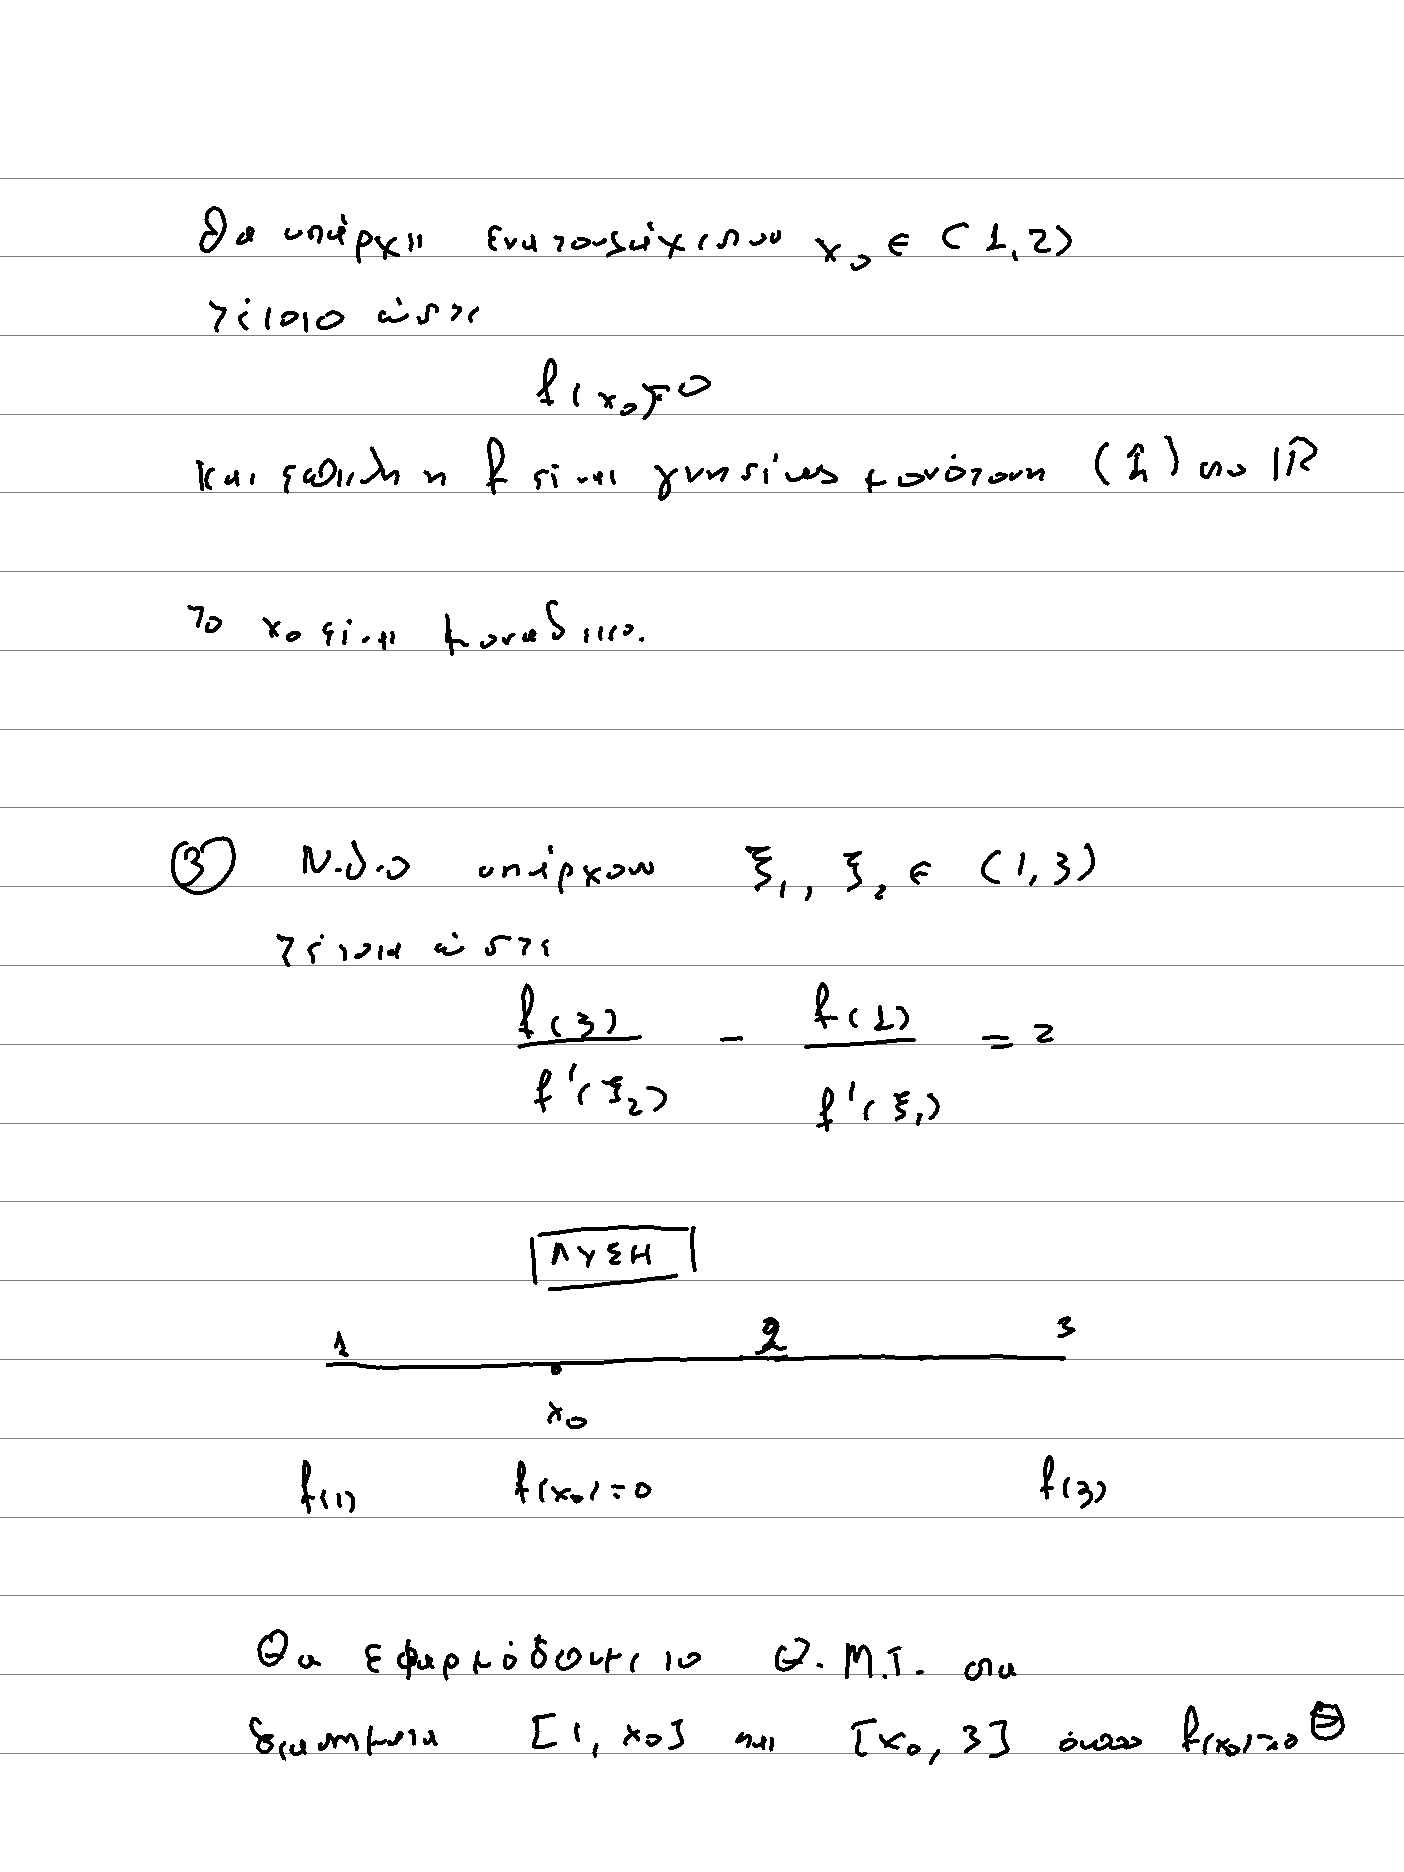 θα υπάρχει ένα τουλάχιστον x₀ ∈ (1,2)
τέτοιο ώστε
f(x₀)=0
και επειδή η f είναι γνησίως μονότονη (↑) στο ℝ
το x₀ είναι μοναδικό.
③ Ν.δ.ο υπάρχουν ξ₁, ξ₂ ∈ (1,3)
τέτοια ώστε
f(3)/f'(ξ₂) - f(1)/f'(ξ₁) = 2
ΛΥΣΗ
1 2 3
x₀
f(1) f(x₀)=0 f(3)
Θα εφαρμόσουμε το Θ.Μ.Τ. στα
διαστήματα [1, x₀] και [x₀, 3] όπου f(x₀)=0